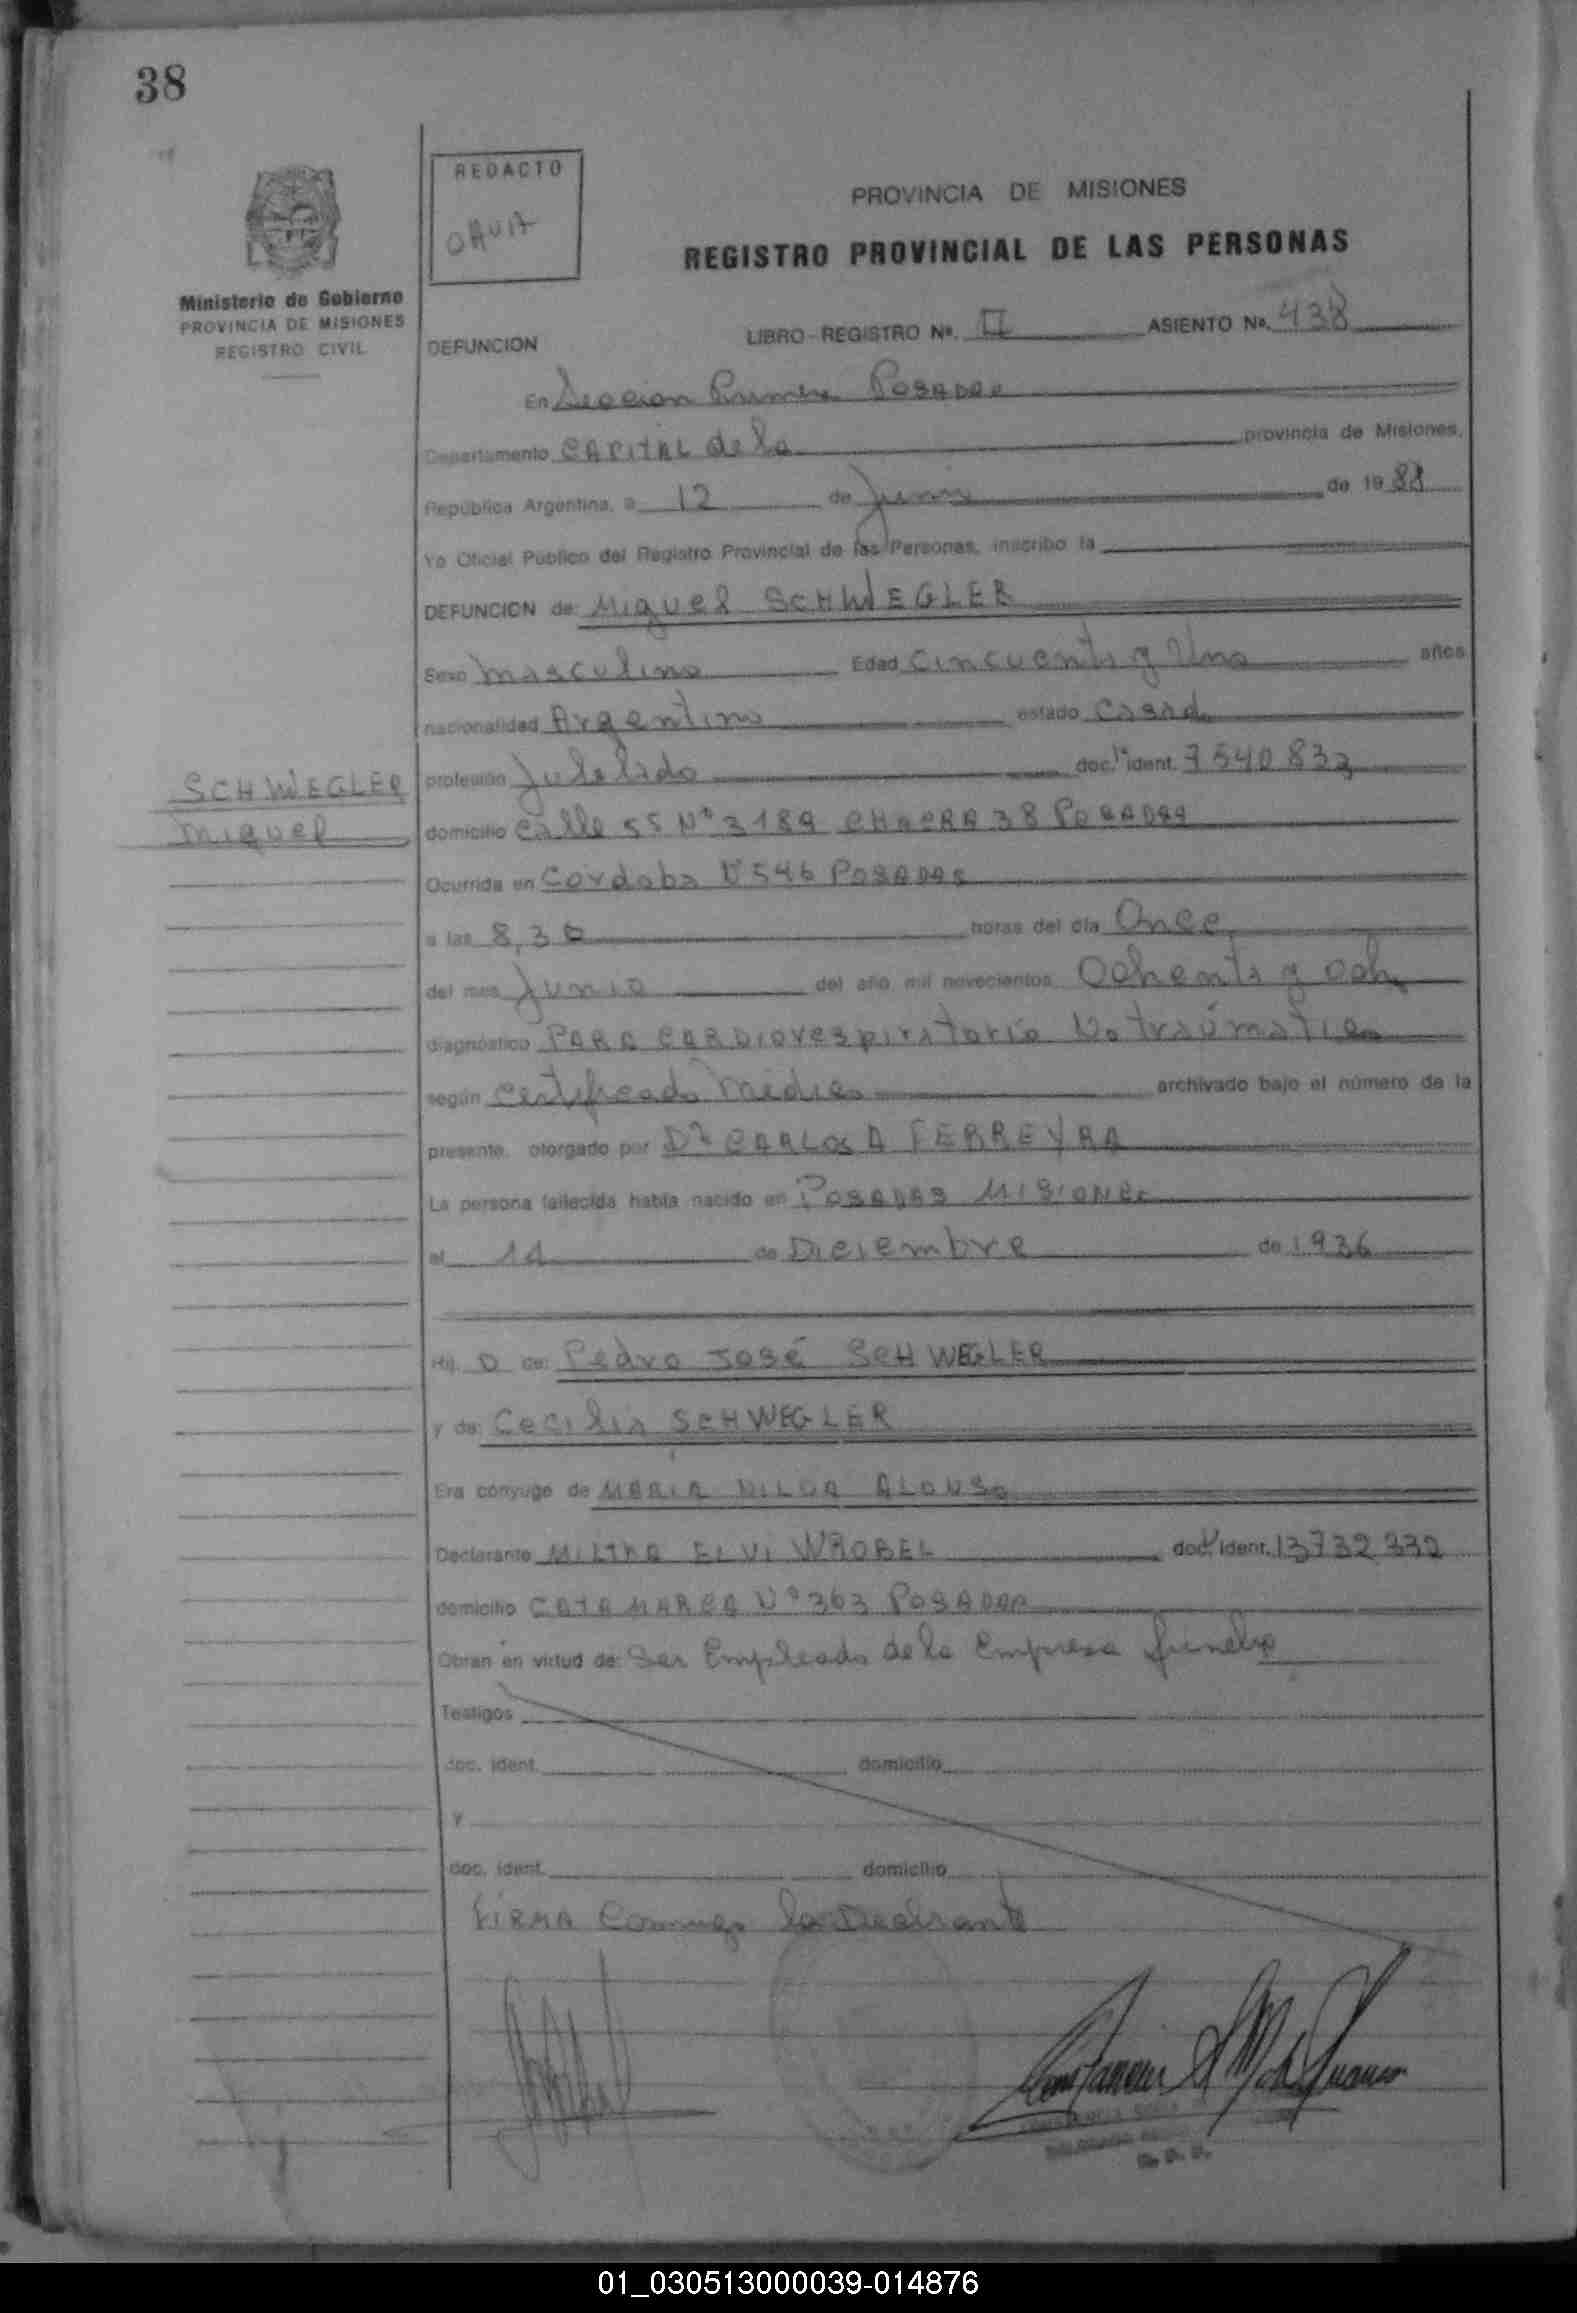 38
REDACTO
PROVINCIA DE MISIONES
REGISTRO PROVINCIAL DE LAS PERSONAS
Ministerio de Gobierno
PROVINCIA DE MISIONES
REGISTRO CIVIL
DEFUNCION LIBRO-REGISTRO Nº. II ASIENTO Nº. 438
En Seccion Primera POSADAS
Departamento CAPITAL de la provincia de Misiones,
República Argentina, a 12 de Junio de 1988
Yo Oficial Público del Registro Provincial de las Personas, inscribo la
DEFUNCION de: Miguel SCHWEGLER
Sexo masculino Edad cincuenta y Uno años
nacionalidad Argentino estado casado
SCHWEGLER
Miguel
profesión Jubilado doc. ident. 7540833
domicilio calle 55 Nº 3189 CHACRA 38 POSADAS
Ocurrida en Cordoba Nº 546 POSADAS
a las 8,30 horas del día Once
del mes Junio del año mil novecientos Ochenta y ocho
diagnóstico PARO CARDIOrespiratorio No traúmatico
según Certificado Médico archivado bajo el número de la
presente, otorgado por Dr CARLOS A FERREYRA
La persona fallecida había nacido en POSADAS MISIONES
el 14 de Diciembre de 1936
Hij o de: Pedro José SCHWEGLER
y de: Cecilia SCHWEGLER
Era cónyuge de MARIA NILDA ALONSO
Declarante ELVI WROBEL doc. ident. 13732332
domicilio CATAMARCA Nº 363 POSADAS
Obran en virtud de: Ser Empleado de la Empresa funebre
Testigos
doc. ident. domicilio
y
doc. ident. domicilio
FIRMA Conmigo la Declarante
01_030513000039-014876